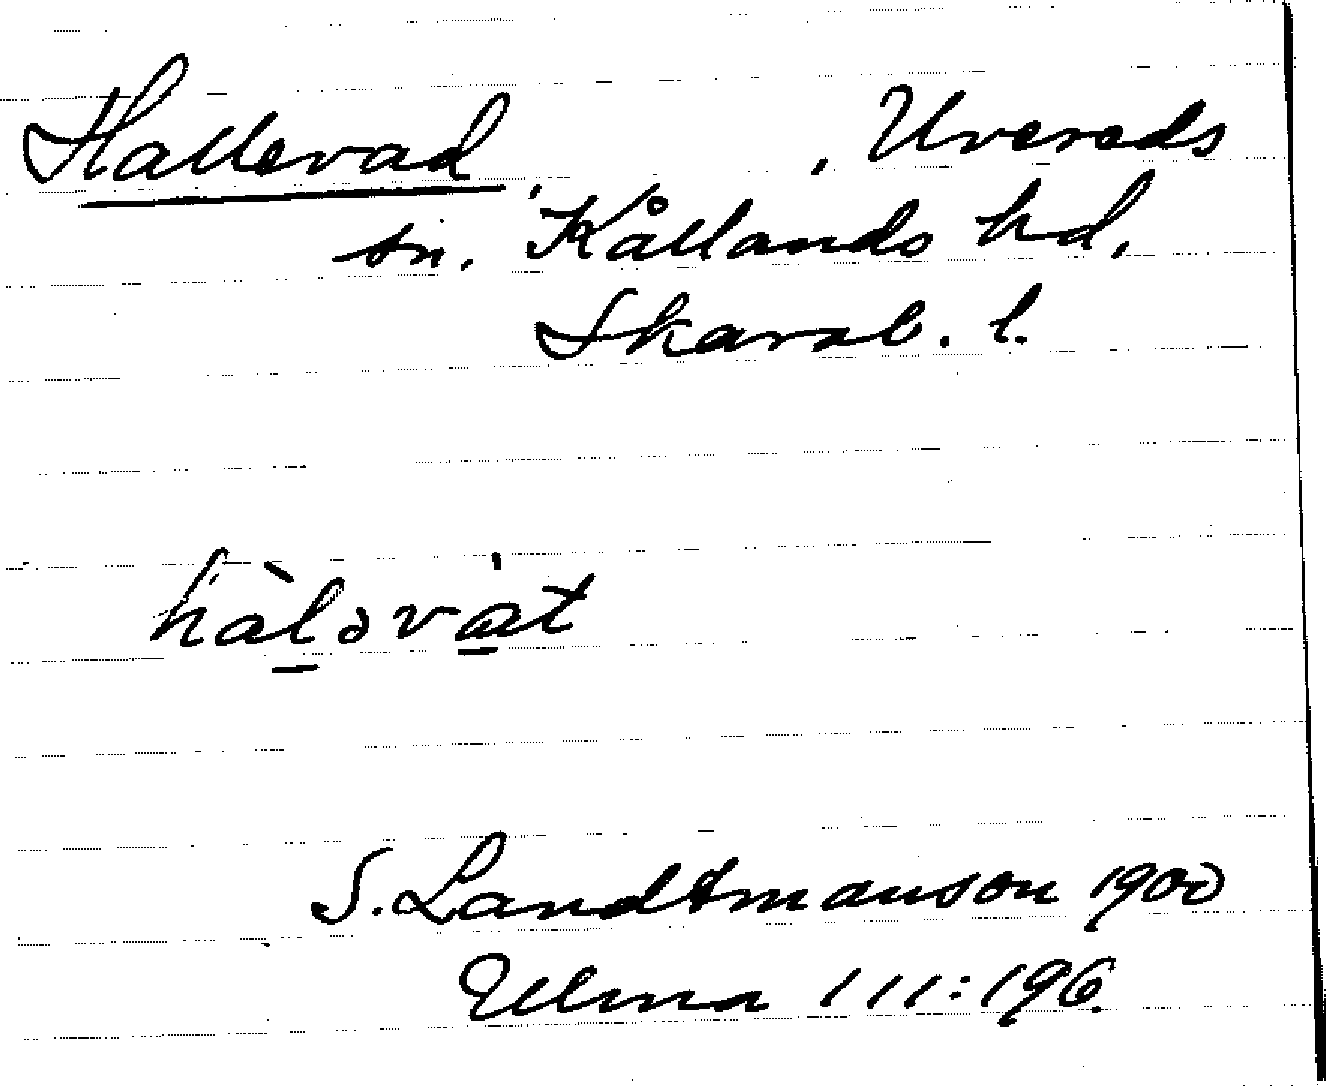 Hallevad, Uvereds
sn. Kållands hd,
Skarab. l.
hàl̠əva̠t
S. Landtmanson 1900
Ulma 111:196.